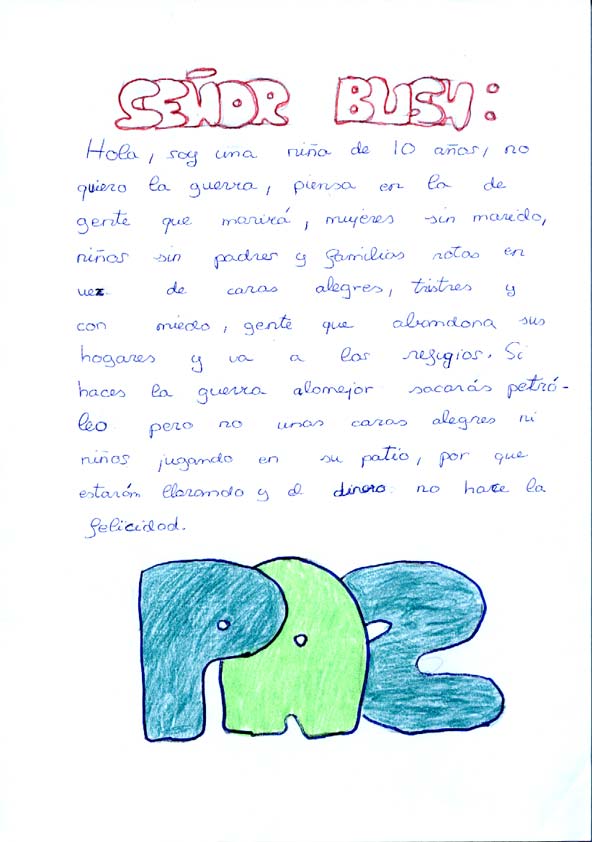 SEÑOR BUSH:
Hola, soy una niña de 10 años, no
quiero la guerra, piensa en la de
gente que marirá, mujeres sin marido,
niños sin padres y familias rotas en
vez de caras alegres, tristres y
con miedo, gente que abandona sus
hogares y va a los refigios. Si
haces la guerra alomejor sacarás petró-
leo pero no unas caras alegres ni
niños jugando en su patio, por que
estarán llorando y el dinero no hace la
felicidad.
PAZ